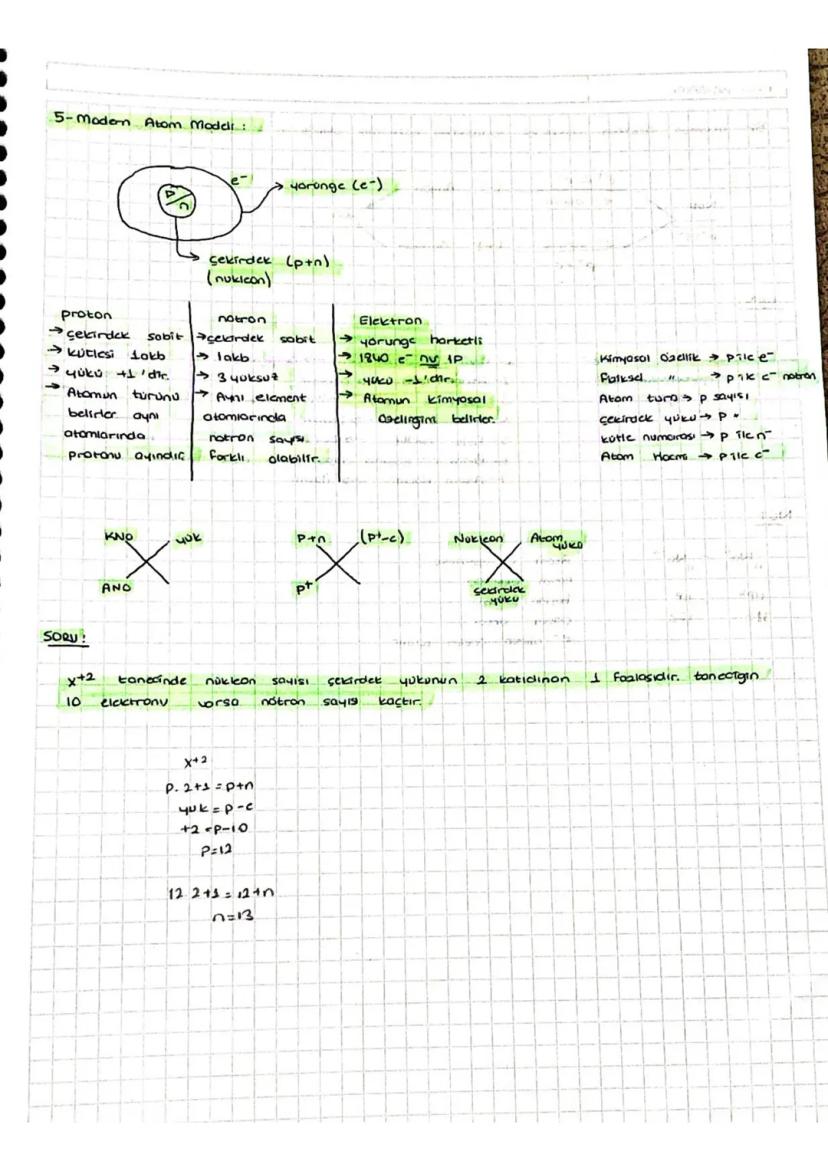 5- Modern Atom Modeli :
e⁻
yörünge (e⁻)
P/n
çekirdek (p+n)
(nukleon)
proton
→ çekirdek sabit
→ kütlesi 1akb
→ yükü +1'dir.
→ Atomun türünü
belirler aynı
atomlarında
protonu aynıdır
nötron
→ çekirdek sabit
→ 1akb.
→ 3 yüksüz
→ Aynı element
atomlarında
nötron sayısı
farklı olabilir.
Elektron
→ yörünge harketli
→ 1840 e⁻ nv 1P
→ yükü -1'dir.
→ Atomun kimyasal
özelliğini belirler.
Kimyasal Özellik → p ile e⁻
Fziksel " → p ile e⁻ nötron
Atom türü → p sayısı
çekirdek yükü → p "
kütle numarası → p ile n⁻
Atom Hacmi → p ile e⁻
KNO yük
ANO
P+n (p⁺-e)
p⁺
Nukleon Atom yükü
çekirdek
yükü
SORU!
x⁺² taneciğinde nükleon sayısı çekirdek yükünün 2 katıdınan 1 fazlasıdır. taneciğin
10 elektronu varsa nötron sayısı kaçtır.
x⁺²
P. 2+1 = p+n
yük = p-e
+2 = p-10
P=12
12 2+1 = 12+n
n=13